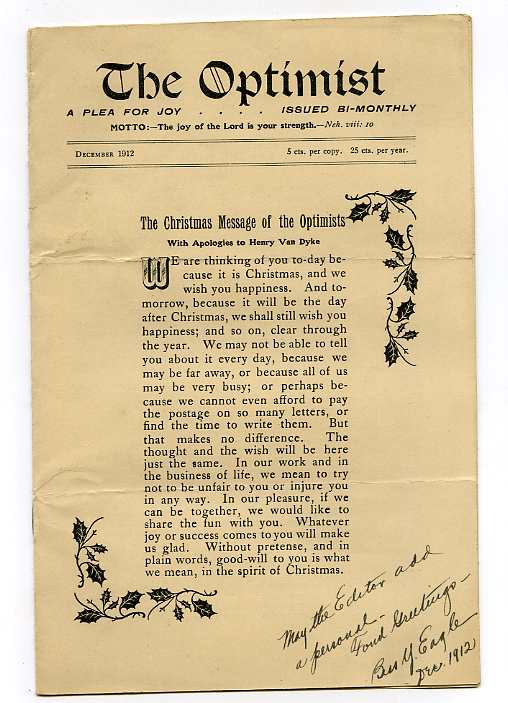 The Optimist
A PLEA FOR JOY . . . . ISSUED BI-MONTHLY
MOTTO:—The joy of the Lord is your strength.—Neh. viii: 10
DECEMBER 1912 5 cts. per copy. 25 cts. per year.
The Christmas Message of the Optimists
With Apologies to Henry Van Dyke
WE are thinking of you to-day be-
cause it is Christmas, and we
wish you happiness. And to-
morrow, because it will be the day
after Christmas, we shall still wish you
happiness; and so on, clear through
the year. We may not be able to tell
you about it every day, because we
may be far away, or because all of us
may be very busy; or perhaps be-
cause we cannot even afford to pay
the postage on so many letters, or
find the time to write them. But
that makes no difference. The
thought and the wish will be here
just the same. In our work and in
the business of life, we mean to try
not to be unfair to you or injure you
in any way. In our pleasure, if we
can be together, we would like to
share the fun with you. Whatever
joy or success comes to you will make
us glad. Without pretense, and in
plain words, good-will to you is what
we mean, in the spirit of Christmas.
May the Editor add
a personal —
Fond Greetings —
Y. Eagle
Dec. 1912